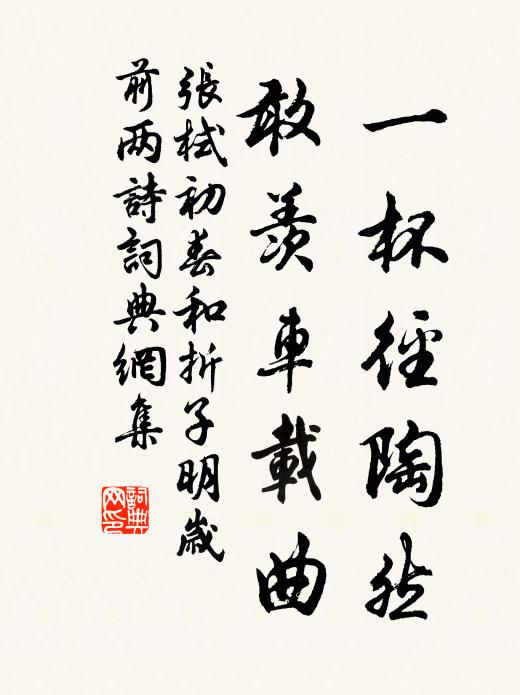 一杯徑陶然
敢羨車載曲
張栻初春和折子明歲
前两詩詞典網集
詞典網印